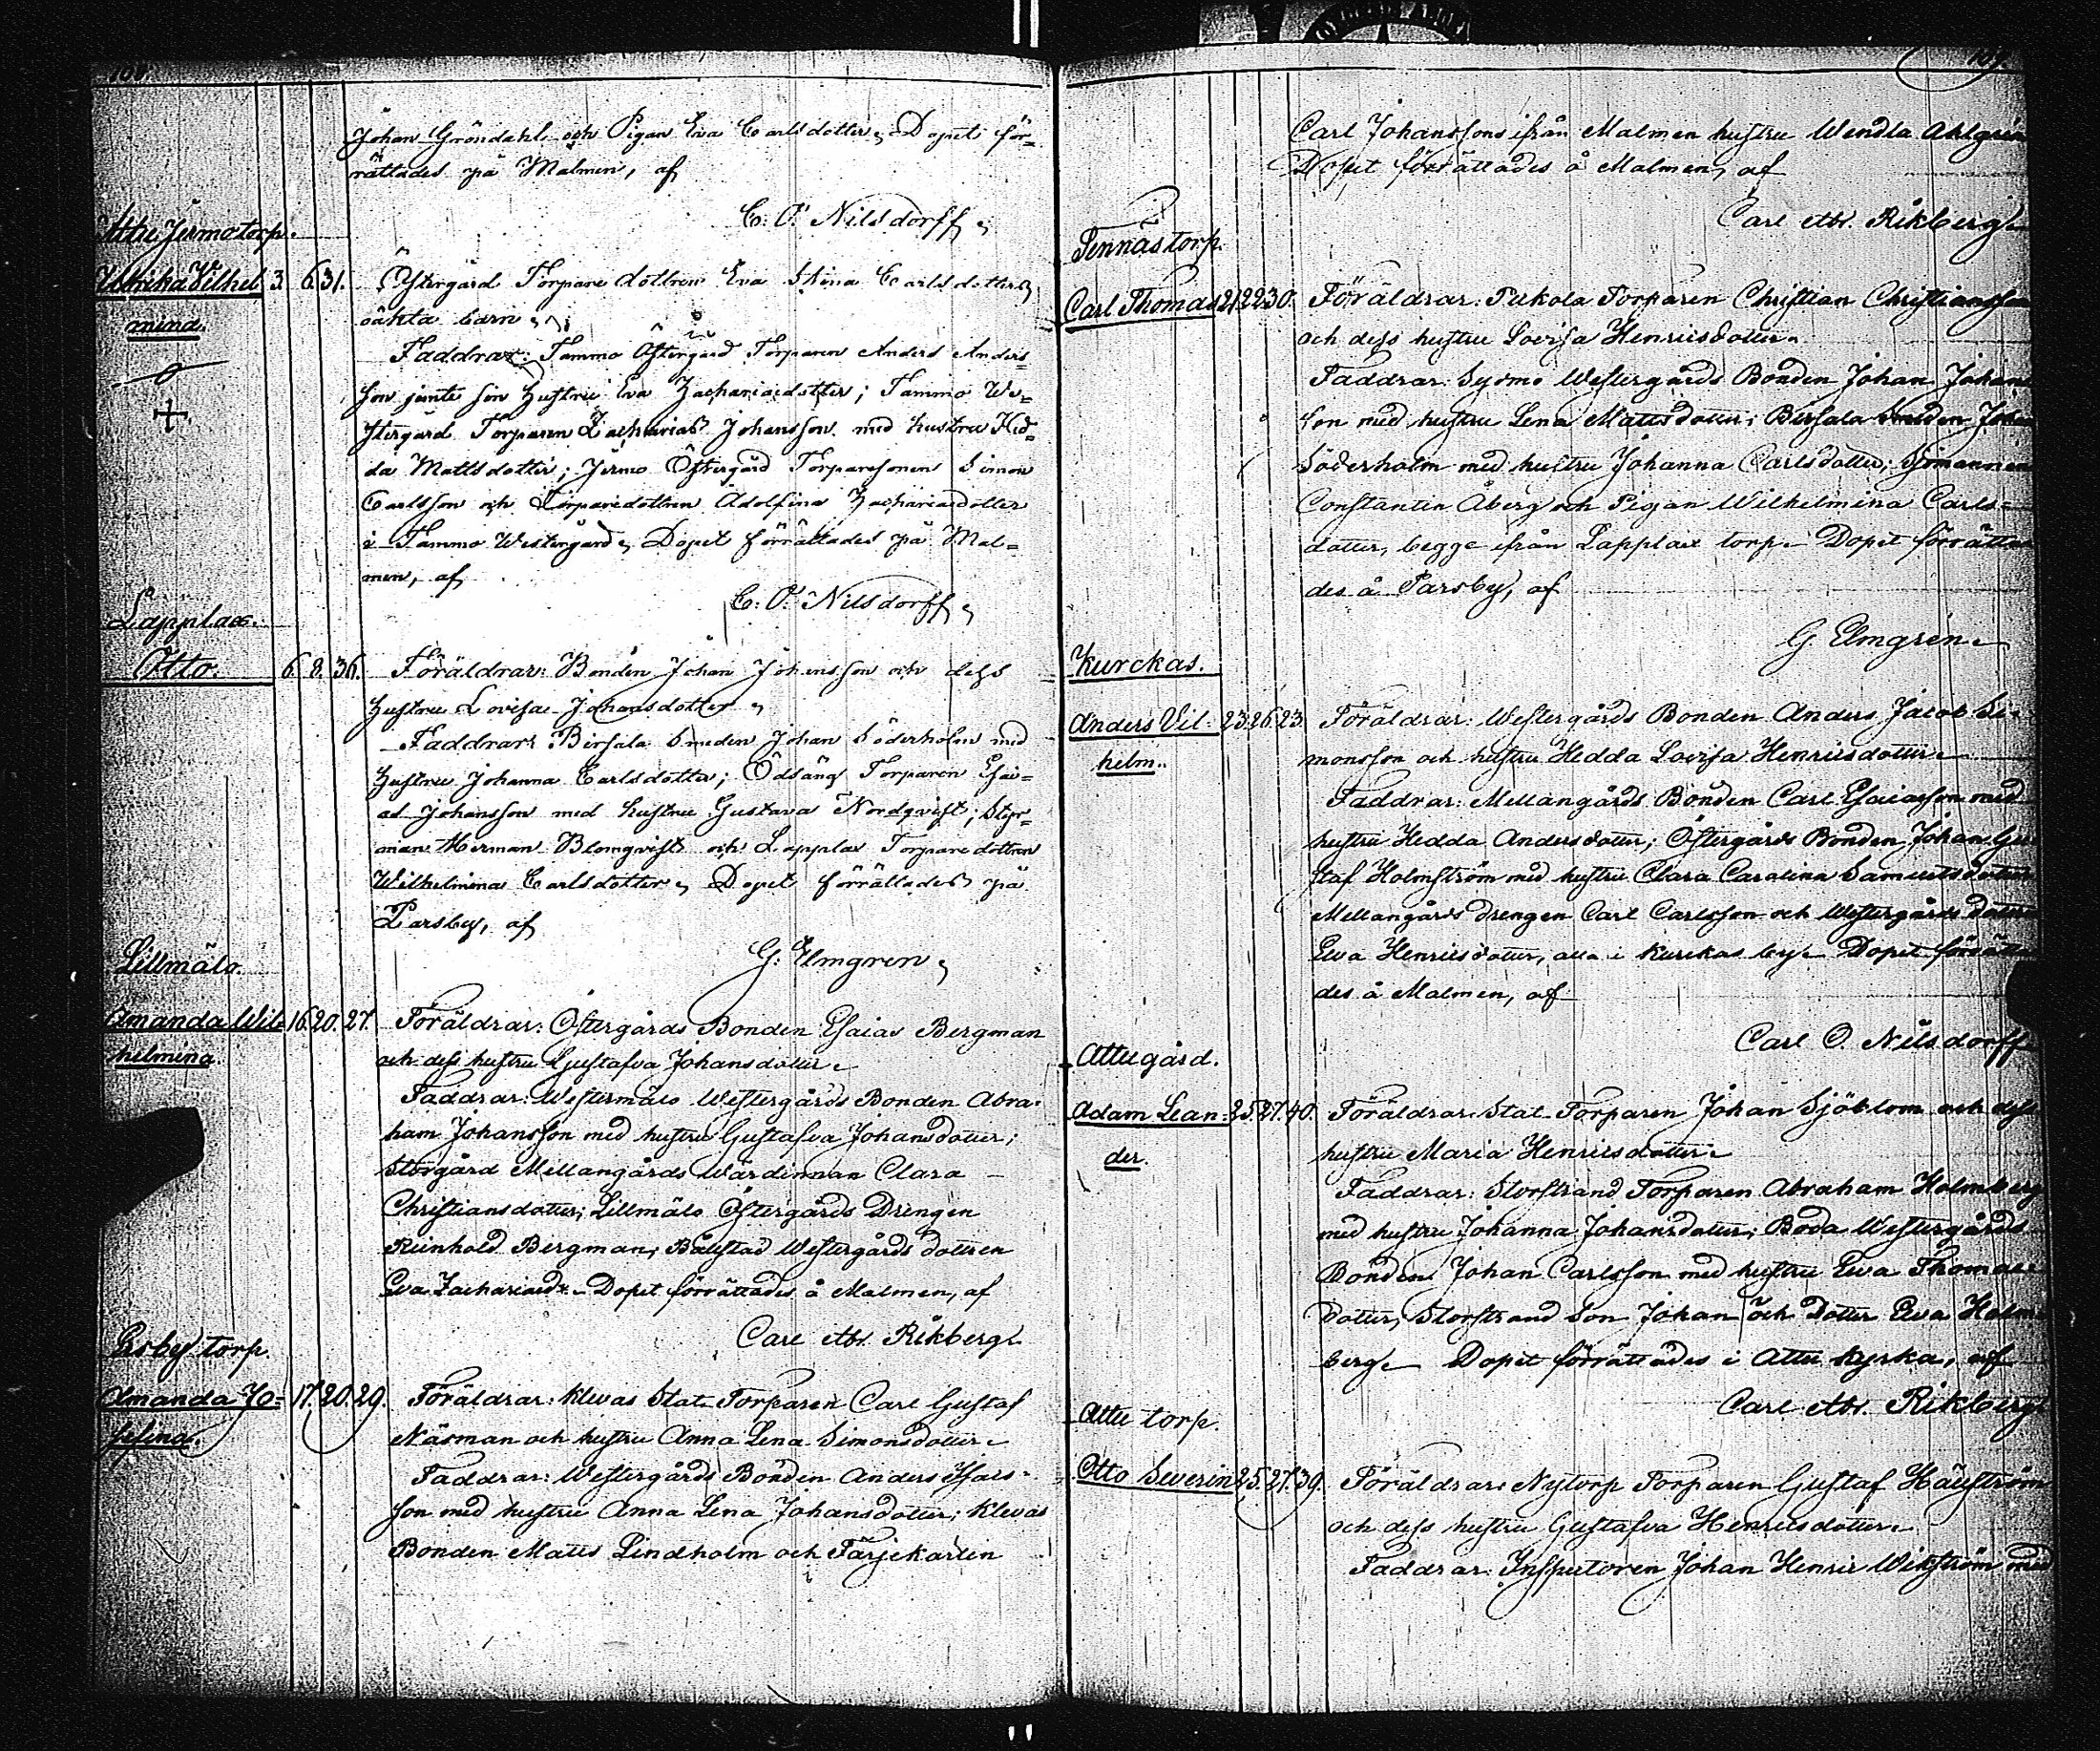 Johan Gröndahl och Pigan Eva Carlsdotter, Dopet för=
rättades på Malmen, af
C. O. Nilsdorff
Attu Jermo torp.
Ulrika Vilhel 3. 6. 31. Östergård Torpare dottren Eva Stina Carlsdotters
mina. oäkta barn
Faddrar: Tammo Östergård Torparen Anders Anders
son jemte sin hustru Eva Zachariasdotter; Tammo We=
stergård Torparen Zacharias Johansson med hustru Hed=
da Mattsdotter; Jermo Östergård Torparesonen Simon
Carlsson och Torparedottren Adolfina Zachariasdotter
i Tammo Westergård, Dopet förrättades på Mal=
men, af
C. O. Nilsdorff
Lapplax.
Otto. 6. 8. 36. Föräldrar: Bonden Johan Johansson och dess
hustru Lovisa Johansdotter
Faddrar: Birsala Smeden Johan Söderholm med
hustru Johanna Carlsdotter; Ödsäng Torparen Esai=
as Johansson med hustru Gustava Nordqvist; Styr=
man Herman Blomqvist och Lapplax Torparedottren
Wilhelmina Carlsdotter, Dopet förrättades på
Parsby, af
G. Elmgren
Lillmälo.
Amanda Wil= 16. 20. 27. Föräldrar: Östergårds Bonden Esaias Bergman
helmina och dess hustru Gustafva Johansdotter
Faddrar: Westermälo Westergårds Bonden Abra=
ham Johansson med hustru Gustafva Johansdotter;
Storgård Mellangårds Wärdinnan Clara
Christiansdotter; Lillmälo Östergårds Drengen
Reinhold Bergman; Bällstad Westergårds dottren
Eva Zachariasdr. Dopet förrättades å Malmen, af
Carl Abr. Rikberg
torp.
Amanda Jo= 17. 20. 29. Föräldrar: Klevas Stat-Torparen Carl Gustaf
sefina. Näsman och hustru Anna Lena Simonsdotter
Faddrar: Westergårds Bonden Anders
son med hustru Anna Lena Johansdotter; Klevas
Bonden Matts Lindholm och Färjekarlen
109.
Carl Johanssons ifrån Malmen hustru Wendla Ahlgren
Dopet förrättades å Malmen, af
Carl Abr. Rikberg
Pennäs torp.
Carl Thomas 21. 22. 30. Föräldrar: Torparen Christian Christiansson
och dess hustru Lovisa Henricsdotter
Faddrar: Sydmo Westergårds Bonden Johan Johans
son med hustru Lena Mattsdotter; Birsala Smeden Johan
Söderholm med hustru Johanna Carlsdotter; Sjömannen
Constantin Åberg och Pigan Wilhelmina Carls=
dotter, begge ifrån Lapplax torp. Dopet förrätta
des å Parsby, af
G. Elmgren
Kurckas.
Anders Vil= 23. 26. 23. Föräldrar: Westergårds Bonden Anders Jacob Si=
helm. monsson och hustru Hedda Lovisa Henricsdotter
Faddrar: Mellangårds Bonden Carl Esaiasson med
hustru Hedda Andersdotter; Östergårds Bonden Johan Gu
staf Holmström med hustru Clara Carolina Samuelsdotter
Mellangårds Drengen Carl Carlsson och Westergårds dotter
Eva Henricsdotter, alla i Kurckas by. Dopet förrätta
des å Malmen, af
Carl O. Nilsdorff
Attu gård.
Adam Lean= 25. 27. 40. Föräldrar: Stat-Torparen Johan Sjöblom och dess
der. hustru Maria Henricsdotter
Faddrar: Storstrand Torparen Abraham Holmberg
med hustru Johanna Johansdotter; Boda Westergårds
Bonden Johan Carlsson med hustru Eva Thomas=
dotter; Storstrand Son Johan och Dotter Eva Holm
berg. Dopet förrättades i Attu Kyrka, af
Carl Abr. Rikberg
Attu torp.
Otto Severin 25. 27. 39. Föräldrar: Nytorp Torparen Gustaf Hällström
och dess hustru Gustafva Henricsdotter
Faddrar: Inspectoren Johan Henric Wikström med